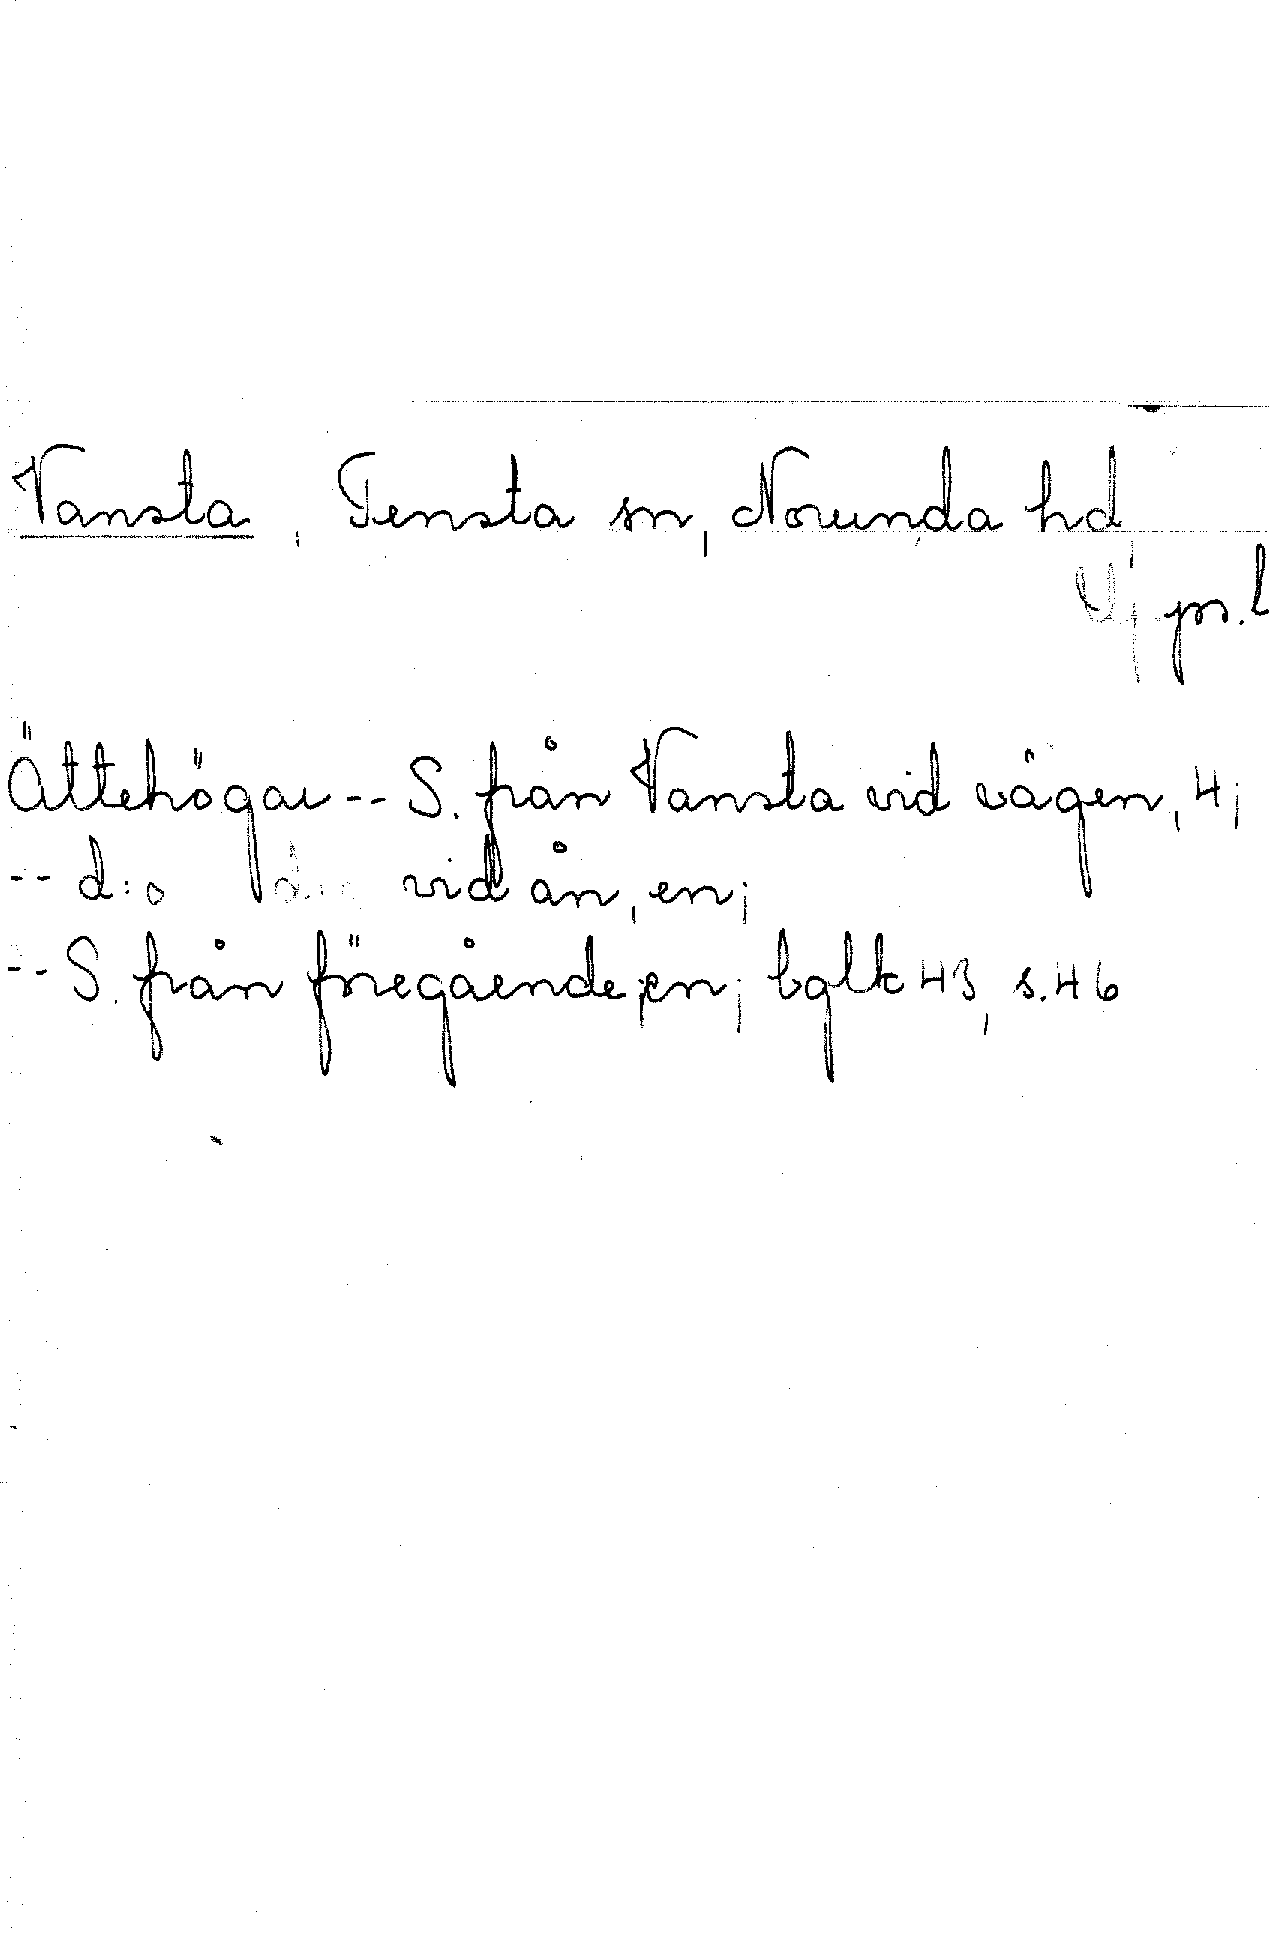 Vansta, Tensta sn, Norunda hd,
Upps. l
Ättehögar -- S. från Vansta vid vägen, 4;
-- d:o d:o vid ån, en;
-- S. från föregående, en; bglk 43, s. 46